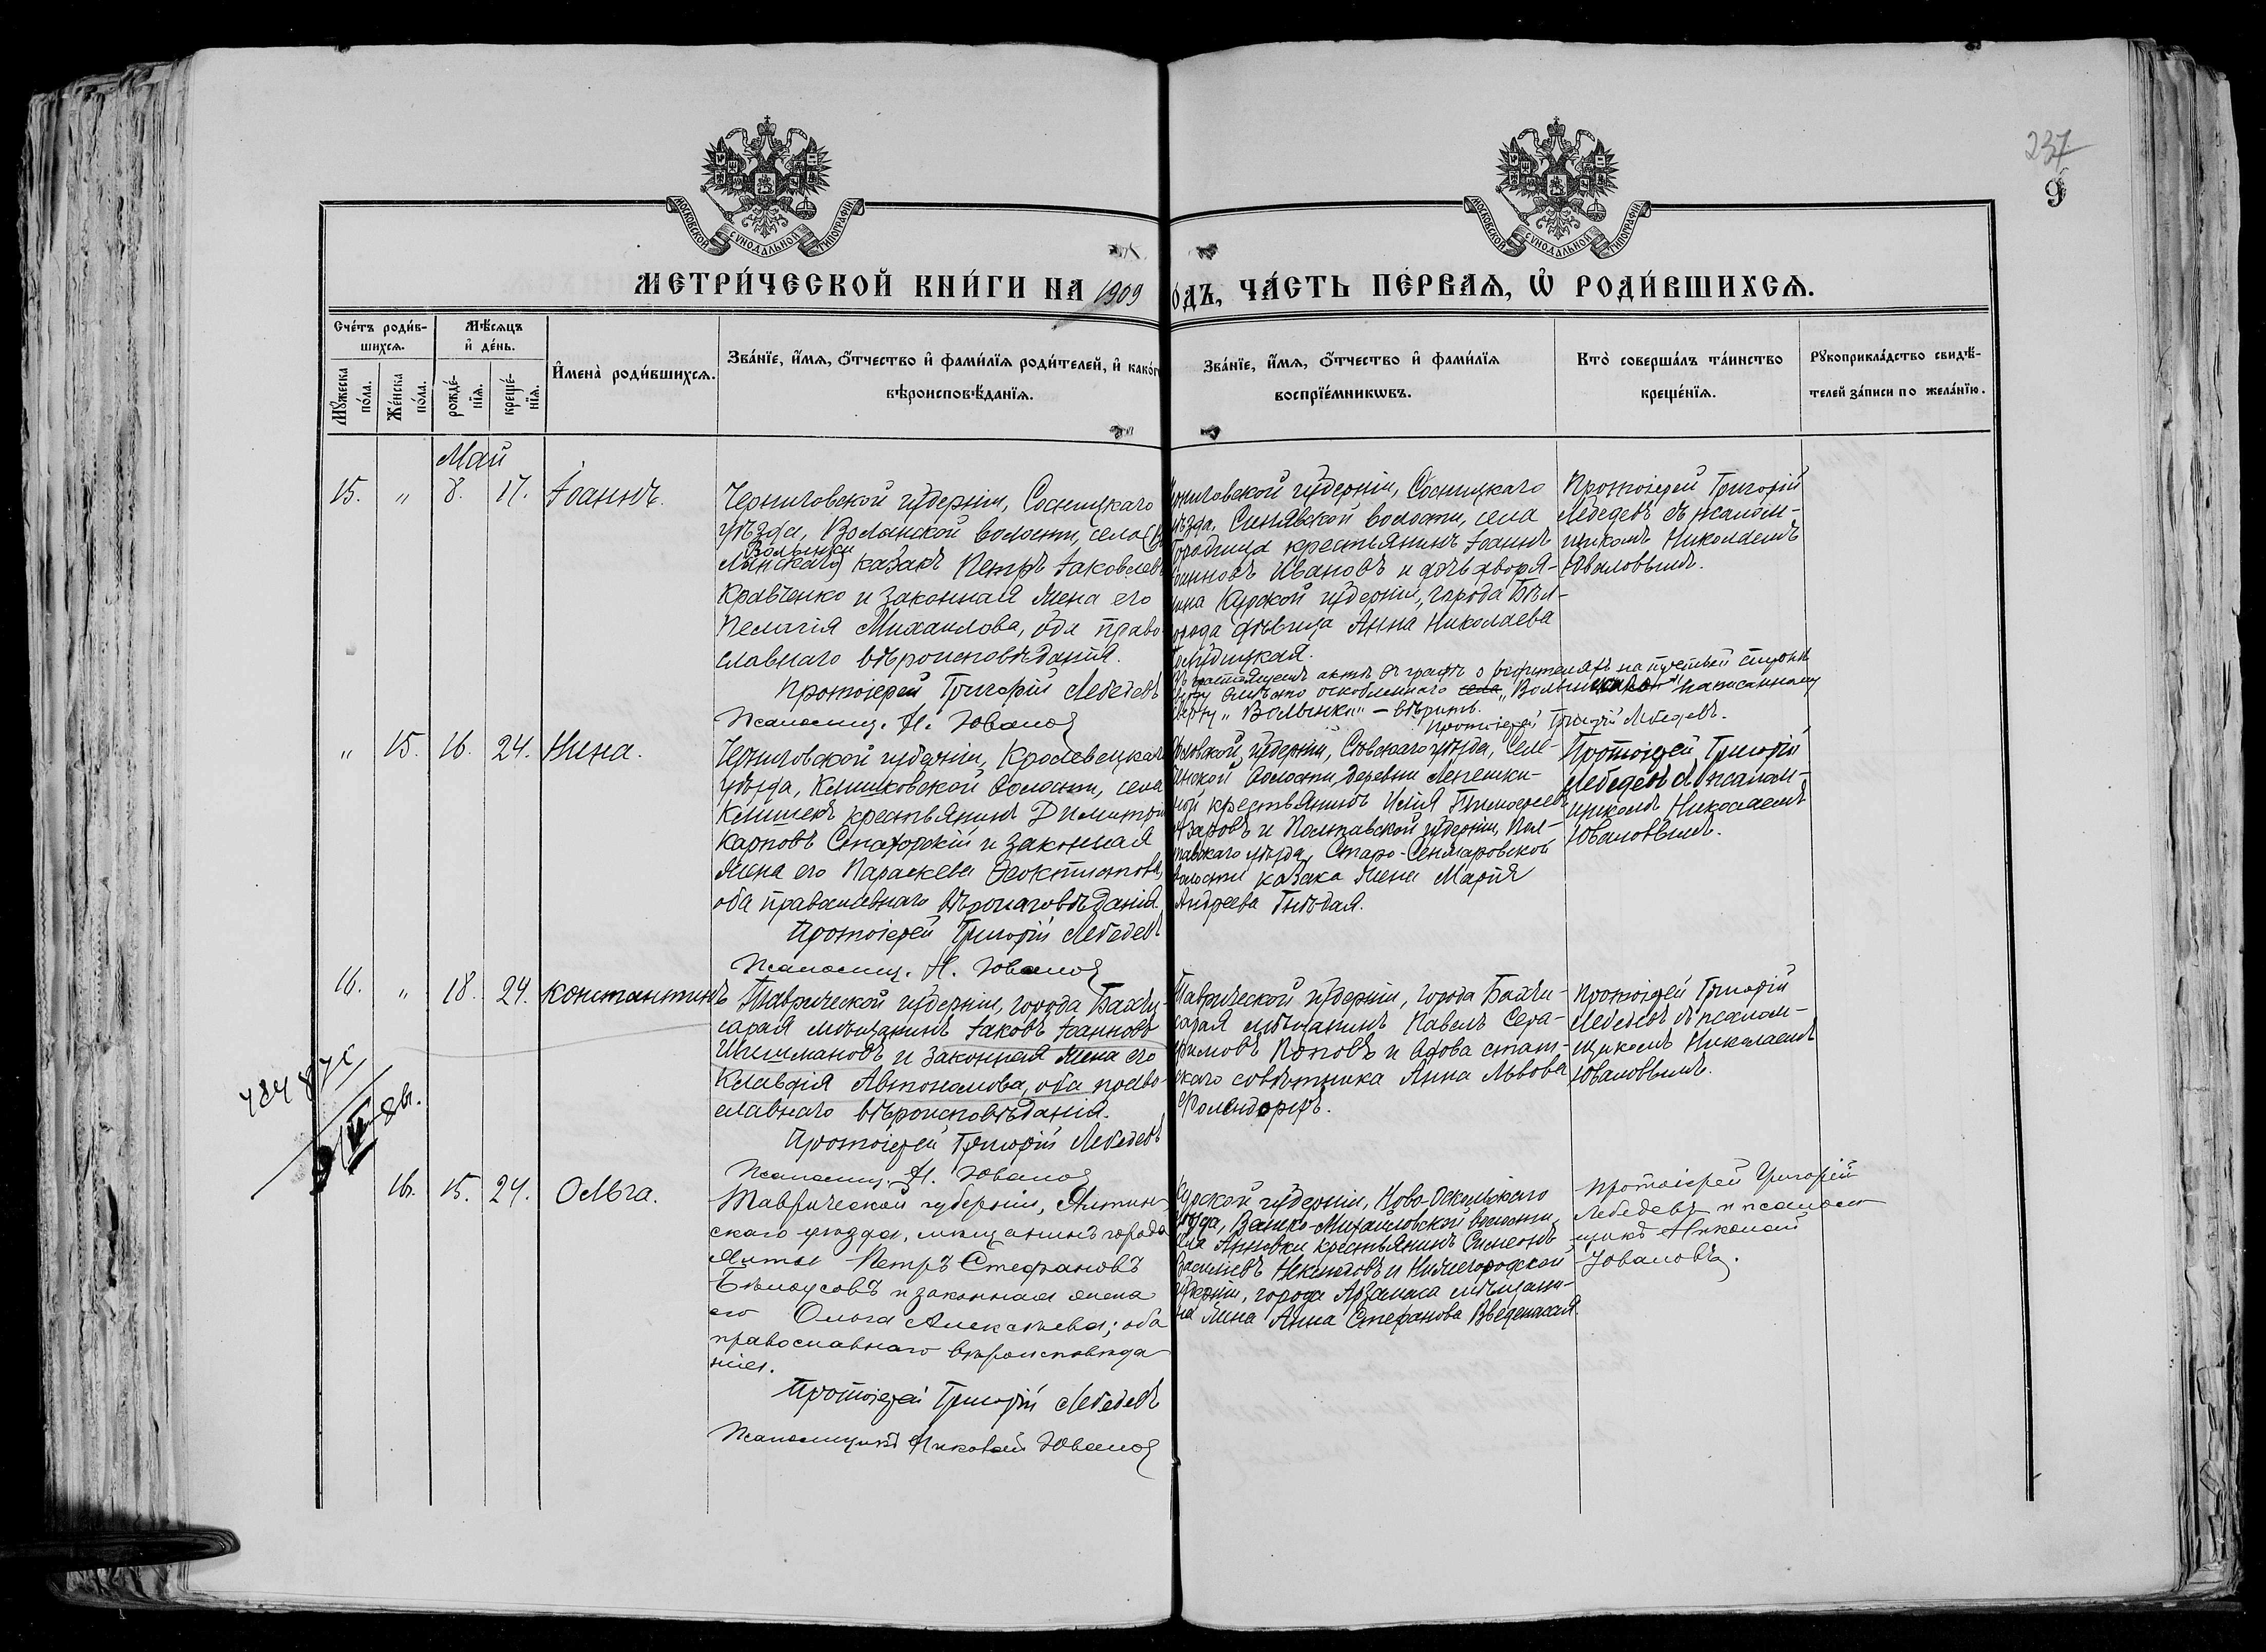 237
9
МОСКОВСКОЙ СѴНОДАЛЬНОЙ ТИПОГРАФІИ
МОСКОВСКОЙ СѴНОДАЛЬНОЙ ТИПОГРАФІИ
МЕТРИ́ЧЕСКОЙ КНИ́ГИ НА 1909
О́ДЪ, ЧА́СТЬ ПЕ́РВАѦ, Ѡ҆ РОДИ́ВШИХСѦ.
Сче́тъ роди́в-
шихсѧ.
Мꙋ́жеска по́ла.
Же́нска по́ла.
Мѣ́сѧцъ
и҆ де́нь.
рожде́-
нїѧ.
креще́-
нїѧ.
И҆мена̀ роди́вшихсѧ.
Зва́нїе, и҆́мѧ, ѻ҆́тчество и҆ фами́лїѧ роди́телей, и҆ како́г
вѣроисповѣ́данїѧ.
Зва́нїе, и҆́мѧ, ѻ҆́тчество и҆ фами́лїѧ
воспрїе́мникѡвъ.
Кто̀ соверша́лъ та́инство
креще́нїѧ.
Рꙋкоприкла́дство свидѣ́-
телей за́писи по жела́нїю.
Май
15. " 8. 17. Іоаннъ.
Черниговской губерніи, Сосницкаго
уѣзда, Волынской волости, села (Во
Волынки
лынскаго) казакъ Петръ Іаковлевъ
Кравченко и законная жена его
Пелагія Михаилова, оба право-
славнаго вѣроисповѣданія.
Протоіерей Григорій Лебедевъ
Псаломщ. Н. Юваловъ
рниговской губерніи, Сосницкаго
уѣзда, Синявской волости, села
Городища крестьянинъ Іоаннъ
Іоанновъ Ивановъ и дочь дворя-
нина Курской губерніи, города Бѣл-
города дѣвица Анна Николаева
Въ настоящемъ актѣ въ графѣ о родителяхъ на третьей строкѣ
вверху вмѣсто оскобленнаго села "Волынскаго" написанному
сверху "Волынки" – вѣрить.
Протоіерей Григорій Лебедевъ.
Протоіерей Григорій
Лебедевъ съ псалом-
щикомъ Николаемъ
Юваловымъ.
" 15. 16. 24. Нина.
Черниговской губерніи, Кролевецкаго
уѣзда, Клишковской волости, села
Клишекъ крестьянинъ Димитрій
Карповъ и законная
жена его Параскева Ѳеоктистова,
оба православнаго вѣроисповѣданія.
Протоіерей Григорій Лебедевъ
Псаломщ. Н. Юваловъ
Орловской губерніи, Сѣвскаго уѣзда,
волости, деревни Лепешки-
ной крестьянинъ Илія Тимоѳеевъ
Азаровъ и Полтавской губерніи, Пол-
тавскаго уѣзда, Старо-Сенжаровской
волости казака жена Марія
Андреева Гнѣдая.
Протоіерей Григорій
Лебедевъ съ псалом-
щикомъ Николаемъ
Юваловымъ.
16. " 18. 24. Константинъ
Таврической губерніи, города Бахчи-
сарая мѣщанинъ Іаковъ Іоанновъ
Шишмановъ и законная жена его
Клавдія Автономова, оба право-
славнаго вѣроисповѣданія.
Протоіерей Григорій Лебедевъ
Псаломщ. Н. Юваловъ
Таврической губерніи, города Бахчи-
сарая мѣщанинъ Павелъ Сера-
фимовъ Поповъ и вдова стат-
скаго совѣтника Анна Львова
Протоіерей Григорій
Лебедевъ съ псалом-
щикомъ Николаемъ
Юваловымъ.
16. 15. 24. Ольга.
Таврической губерніи, Ялтин-
скаго уѣзда, мѣщанинъ города
Ялты Петръ Стефановъ
Бѣлоусовъ и законная жена
его Ольга Алексѣева; оба
православнаго вѣроисповѣда-
нія.
Протоіерей Григорій Лебедевъ
Псаломщикъ Николай Юваловъ
Курской губерніи, Ново-Оскольскаго
уѣзда, Михайловской волости,
села Анновки крестьянинъ Симеонъ
Васильевъ и Нижегородской
губерніи, города Арзамаса мѣщани-
на жена Анна Стефанова Введенская.
Протоіерей Григорій
Лебедевъ и псалом-
щикъ Николай
Юваловъ.